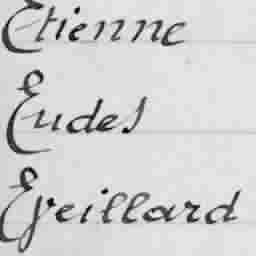 Etienne
Eudes
Eveillard